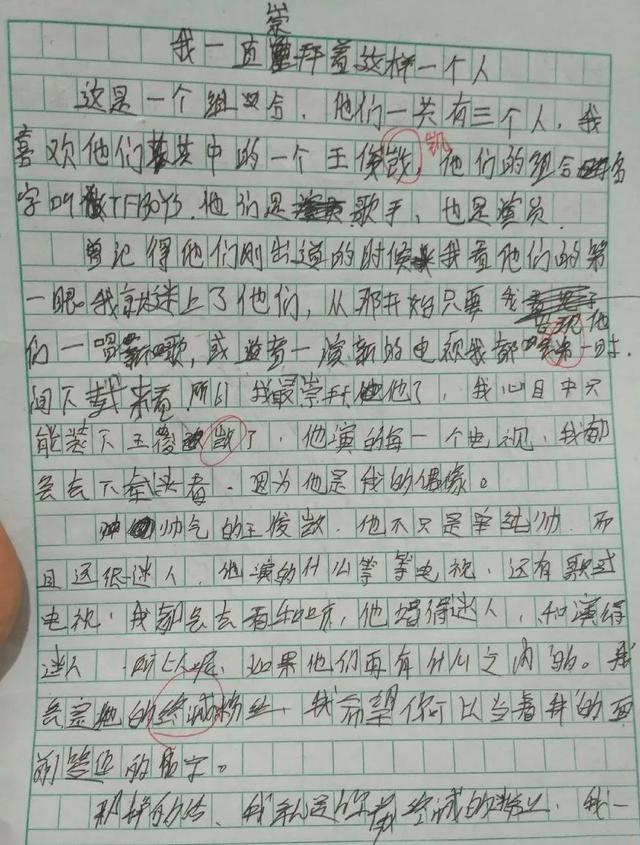 我一直崇拜着这样一个人
这是一个组合，他们一共有三个人，我
喜欢他们其中的一个王俊凯，他们的组合名
字叫做TFBOYS.他们是歌手，也是演员
曾记得他们刚出道的时候我看他们的第
一眼。我就迷上了他们，从那开始只要我
们一唱新歌，或者一演新的电视我都会第一时
间下载来看，所以我最崇拜他了，我心目中只
能装下王俊凯了，他演的每一个电视，我都
会去下载来看，因为他是我的偶像。
帅气的王俊凯，他不只是单纯帅，而
且还很迷人，他演的什么等等电视，还有歌或
电视，我都会去看和听，他唱得迷人，和演得
迷人 所以呢，如果他们再有什么之内的。我
会是他的忠诚粉丝，我希望你可以当着我的面
前签你的名字。
那样的话，我就是你最忠诚的粉丝，我一